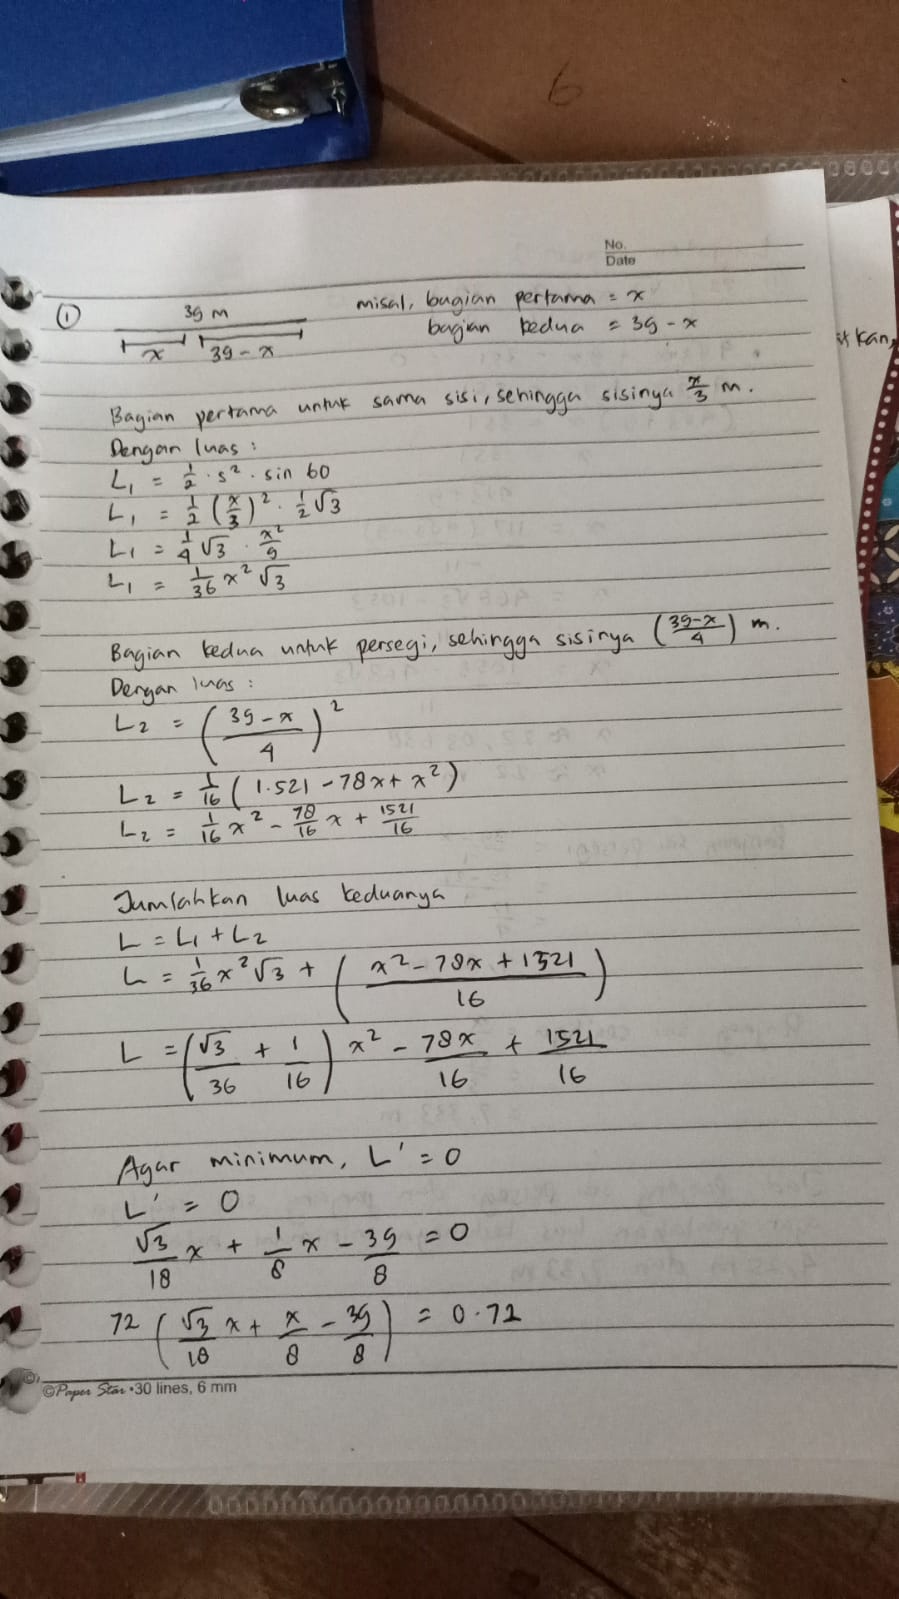 6
No.
Date
① 39 m misal, bagian pertama = x
x 39 - x bagian kedua = 39 - x
Bagian pertama untuk sama sisi, sehingga sisinya x/3 m.
Dengan luas :
L₁ = 1/2 · s² · sin 60
L₁ = 1/2 (x/3)² · 1/2 √3
L₁ = 1/4 √3 · x²/9
L₁ = 1/36 x² √3
Bagian kedua untuk persegi, sehingga sisinya (39-x/4) m.
Dengan luas :
L₂ = (39-x/4)²
L₂ = 1/16 (1.521 - 78x + x²)
L₂ = 1/16 x² - 78/16 x + 1521/16
Jumlahkan luas keduanya
L = L₁ + L₂
L = 1/36 x² √3 + (x² - 78x + 1521/16)
L = (√3/36 + 1/16) x² - 78x/16 + 1521/16
Agar minimum, L' = 0
L' = 0
√3/18 x + 1/8 x - 39/8 = 0
72 (√3/18 x + x/8 - 39/8) = 0.72
©Paper Star •30 lines, 6 mm